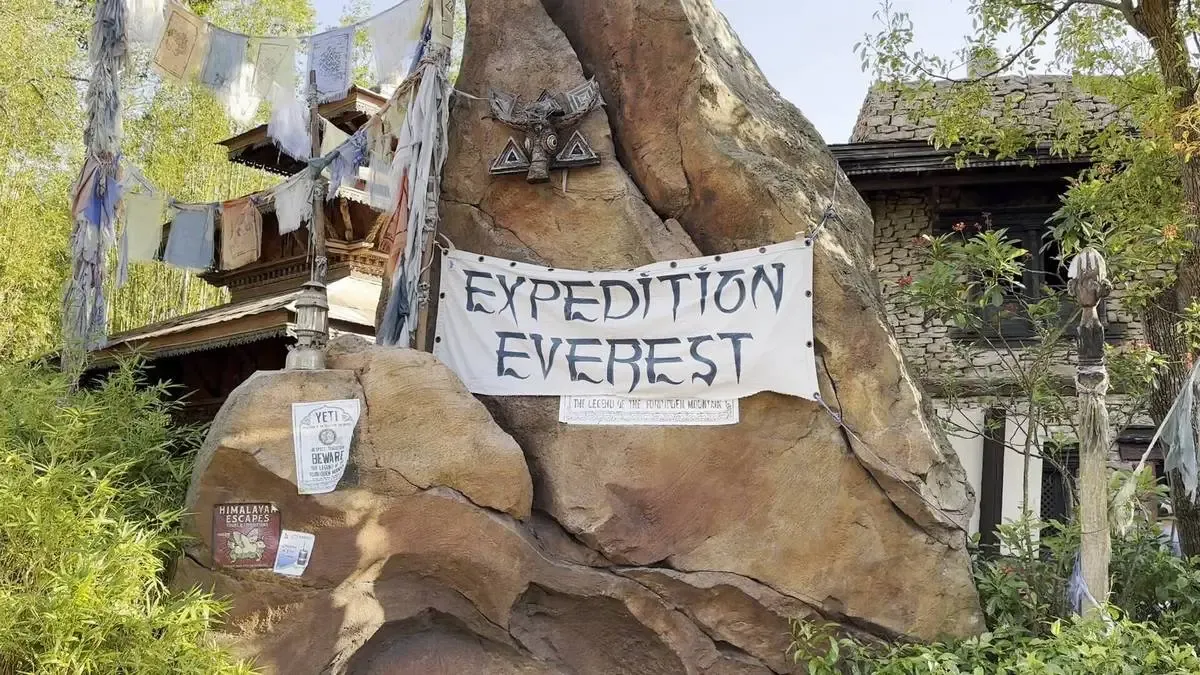 EXPEDITION
EVEREST
THE LEGEND OF THE FORBIDDEN MOUNTAIN
YETI
BEWARE
THE LEGEND OF THE
FORBIDDEN MOUNTAIN
HIMALAYAN
ESCAPES
TOURS & EXPEDITIONS